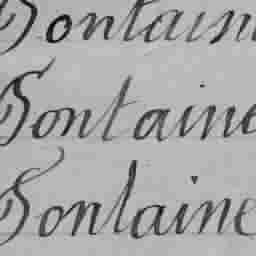 Fontain
Fontaine
Fontaine